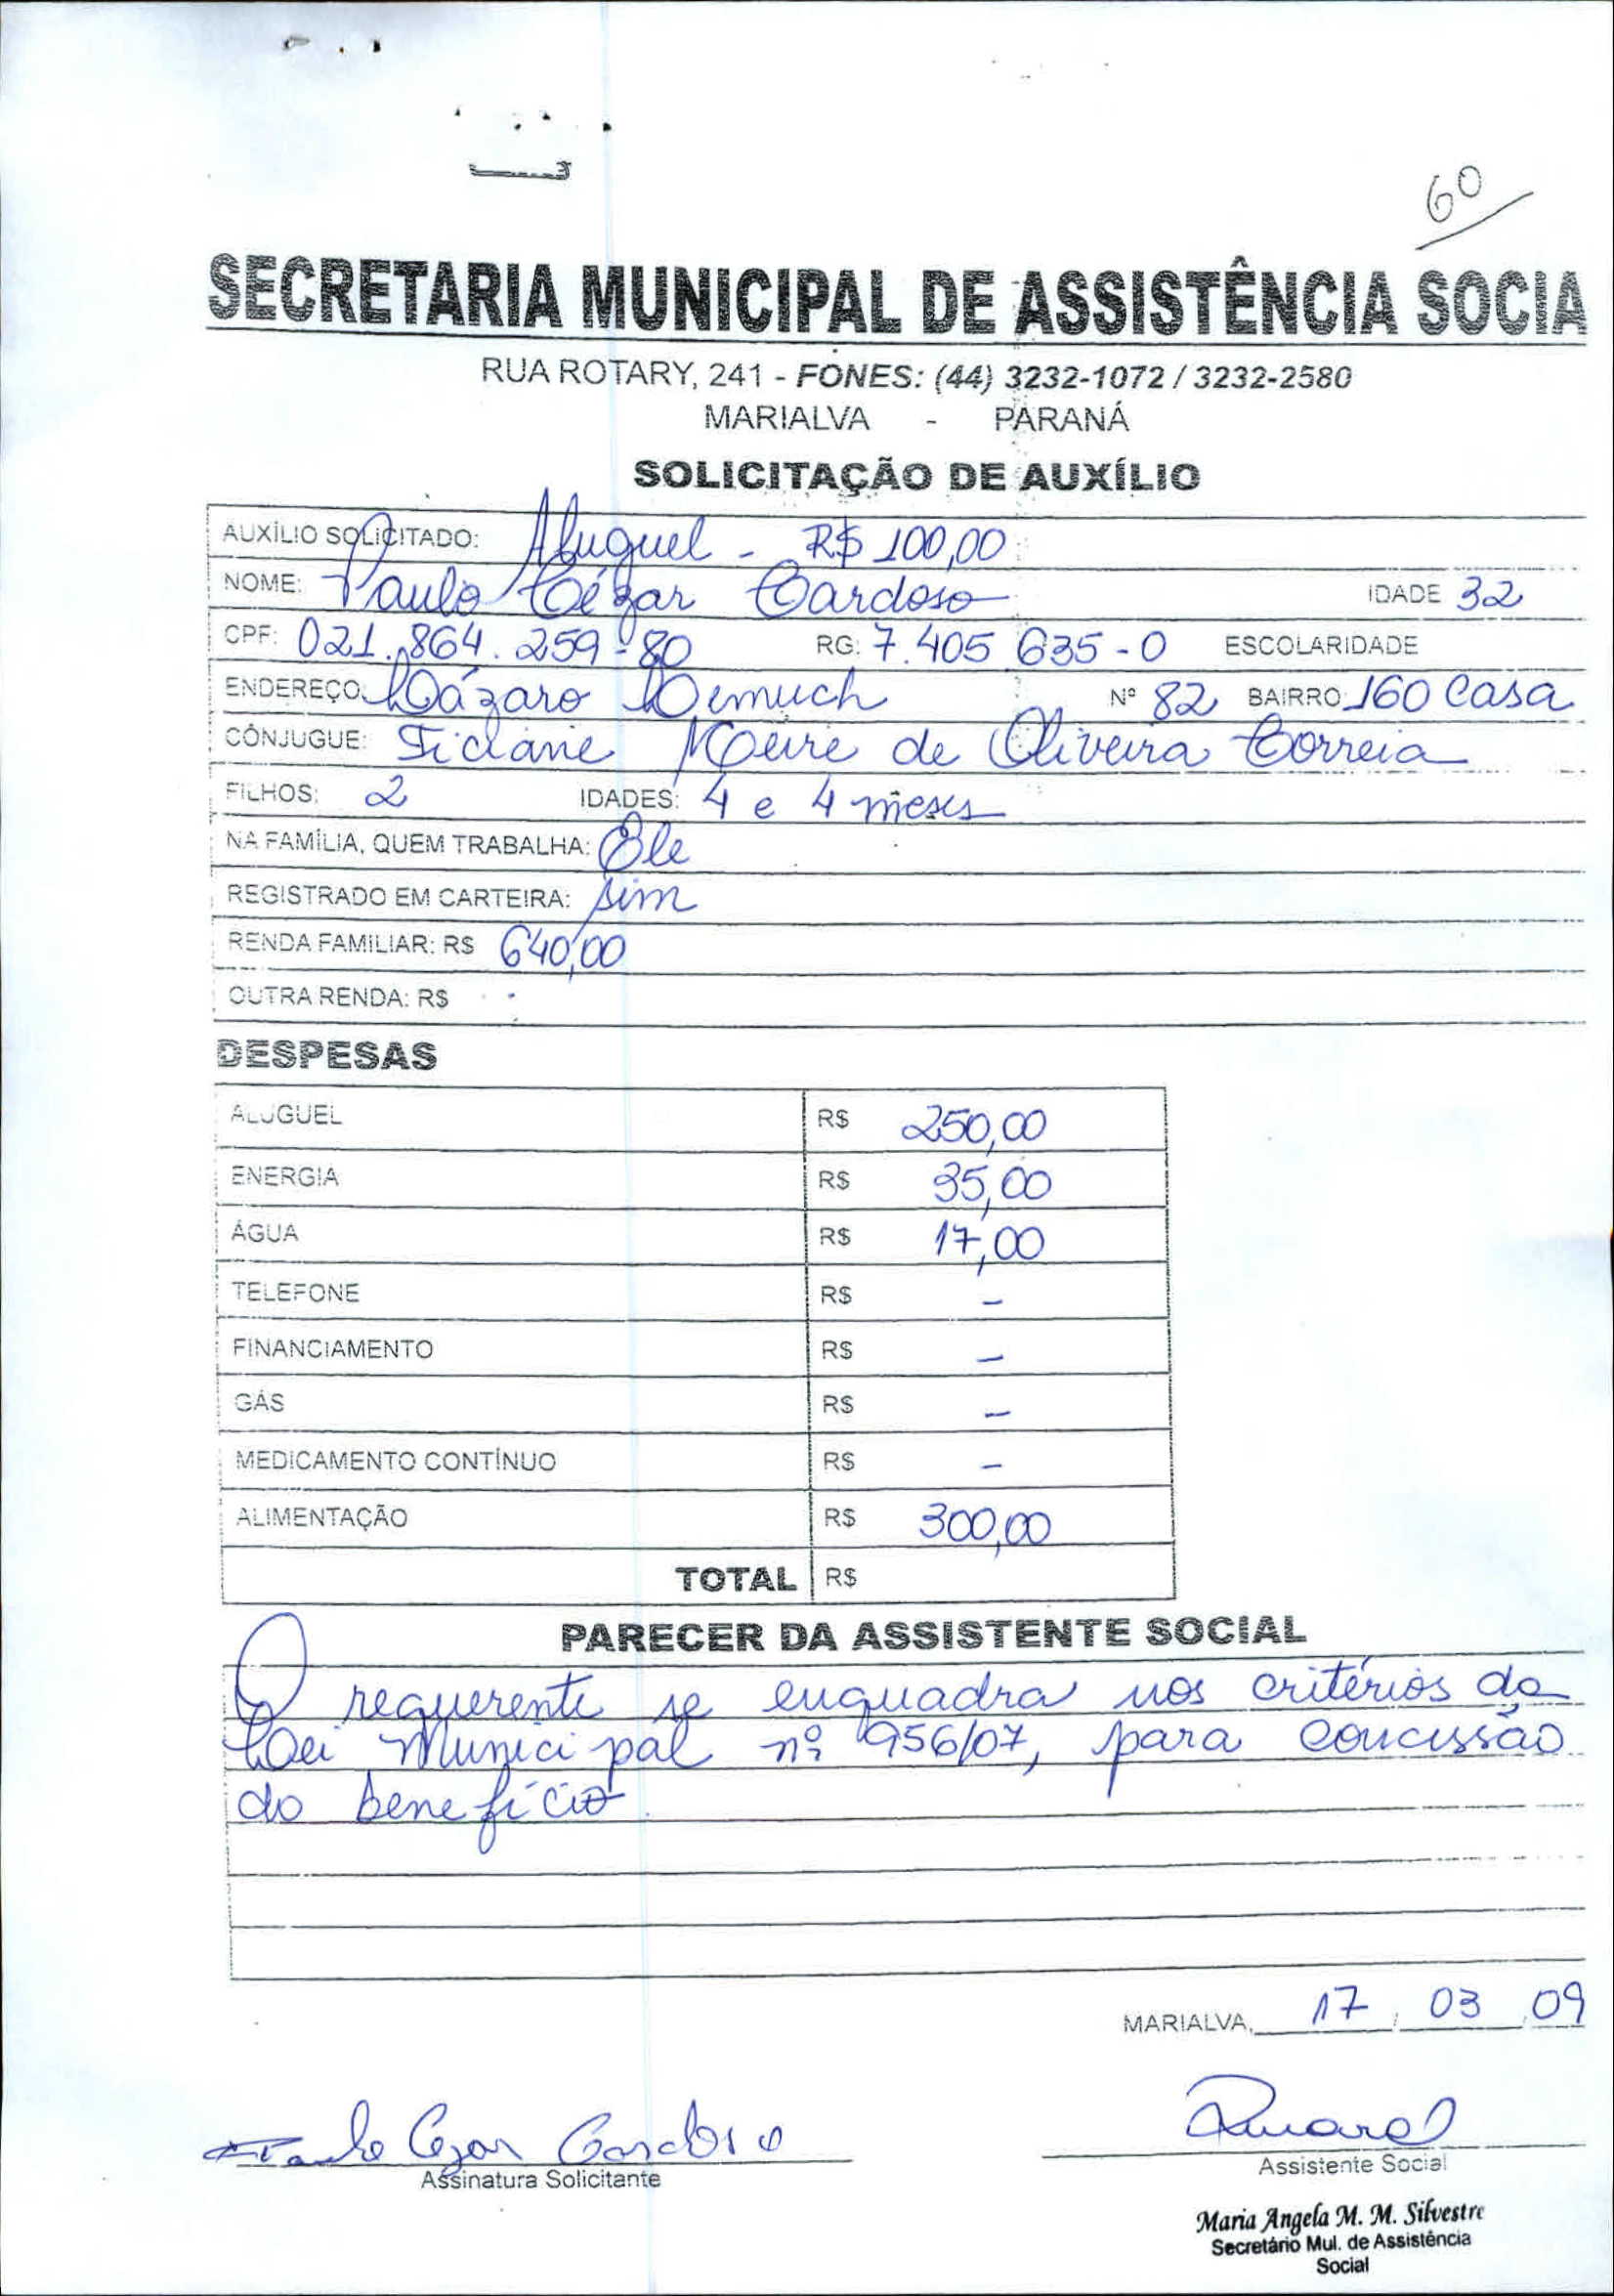 60
SECRETARIA MUNICIPAL DE ASSISTÊNCIA SOCIA
RUA ROTARY, 241 - FONES: (44) 3232-1072 / 3232-2580
MARIALVA - PARANÁ
SOLICITAÇÃO DE AUXÍLIO
AUXÍLIO SOLICITADO: Aluguel - R$ 100,00
NOME: Paulo Cézar Cardoso IDADE 32
CPF: 021.864.259-80 RG: 7.405.635-0 ESCOLARIDADE
ENDEREÇO: Lázaro Nº 82 BAIRRO: 160 Casa
CÔNJUGUE: Ticiane Meire de Oliveira Correia
FILHOS: 2 IDADES: 4 e 4 meses
NA FAMÍLIA, QUEM TRABALHA: Ele
REGISTRADO EM CARTEIRA: sim
RENDA FAMILIAR: R$ 640,00
OUTRA RENDA: R$
DESPESAS
ALUGUEL R$ 250,00
ENERGIA R$ 35,00
ÁGUA R$ 17,00
TELEFONE R$ -
FINANCIAMENTO R$ -
GÁS R$ -
MEDICAMENTO CONTÍNUO R$ -
ALIMENTAÇÃO R$ 300,00
TOTAL R$
PARECER DA ASSISTENTE SOCIAL
O requerente se enquadra nos critérios da
Lei Municipal nº 956/07, para concessão
do benefício.
MARIALVA, 17 / 03 / 09
Paulo Cezar Cardoso
Assinatura Solicitante
Assistente Social
Maria Angela M. M. Silvestre
Secretário Mul. de Assistência
Social